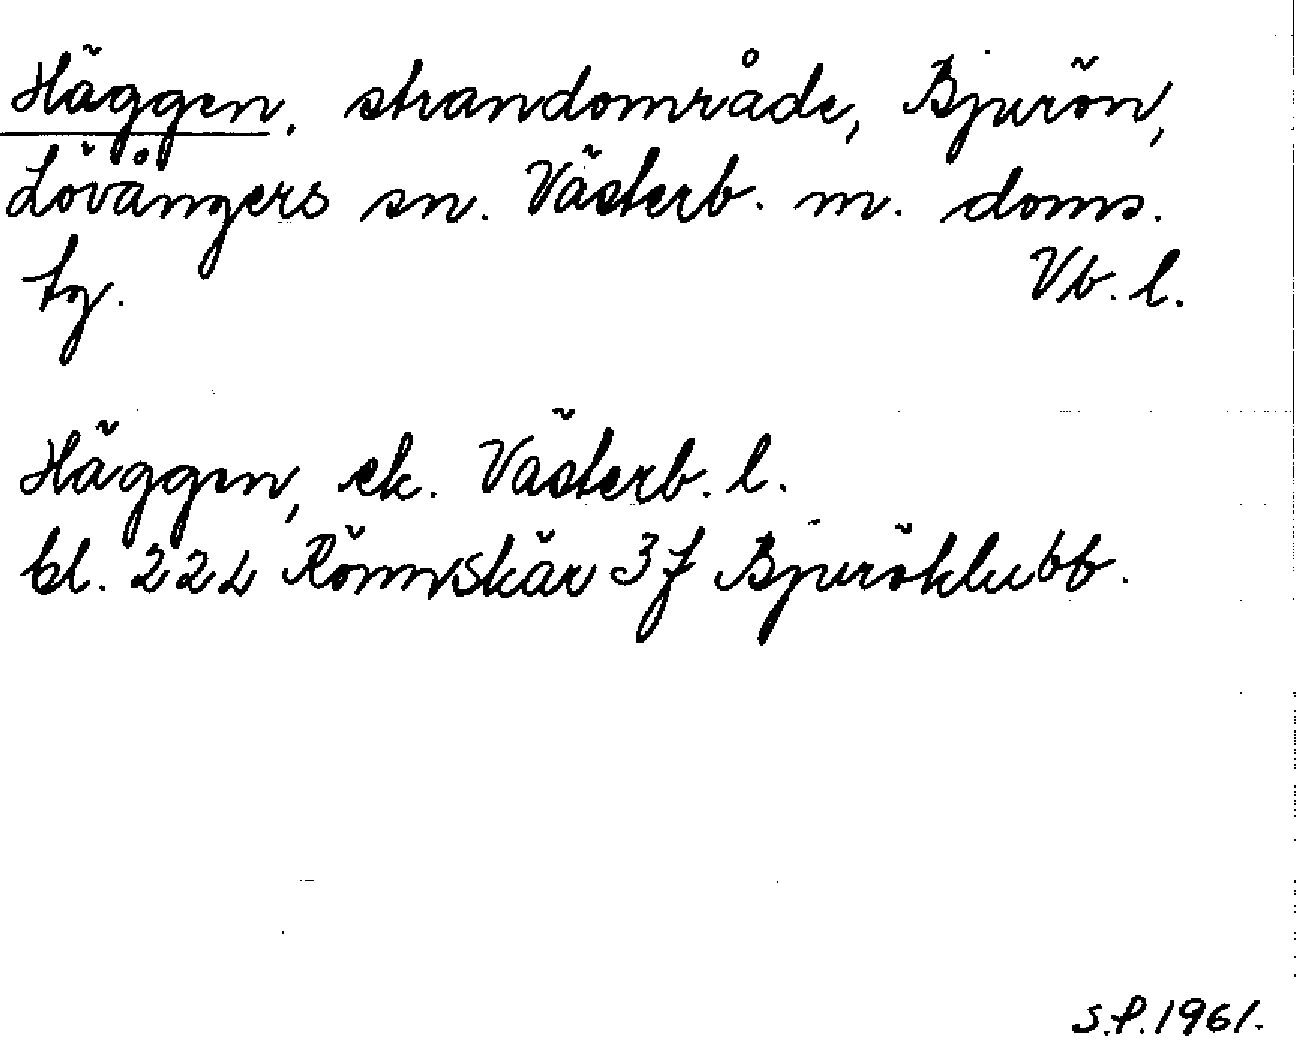 Häggen, strandområde, Bjurön,
Lövångers sn. Västerb. m. doms.
tg. Vb. l.
Häggen, ek. Västerb. l.
bl. 222 Rönnskär 3f Bjuröklubb.
S.P. 1961.